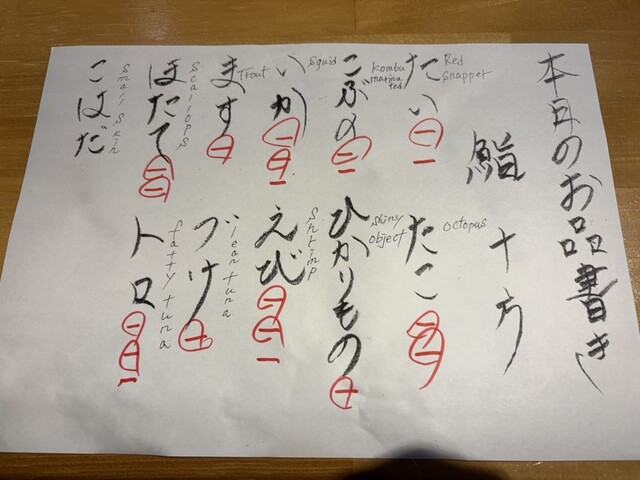 本日のお品書き
鮨 十方
たい Red Snapper
たこ octopus
こぶ〆 Kombu marinated
ひかりもの shiny object
いか Squid
えび Shrimp
ます Trout
づけ lean tuna
ほたて Scallops
トロ fatty tuna
こはだ Small skin